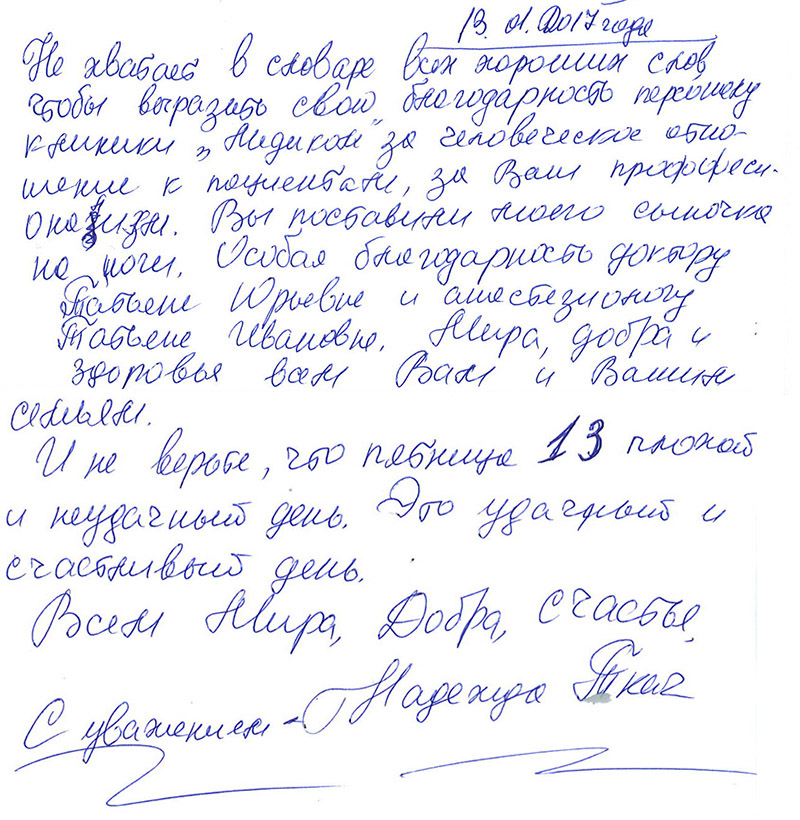 13. 01. 2017 года
Не хватает в словаре всех хороших слов
чтобы выразить свою благодарность персоналу
клиники „Медиком" за человеческое отно-
шение к пациентам, за Ваш профферси-
онализм. Вы поставили моего сыночка
на ноги. Особая благодарность доктору
Татьяне Юрьевне и анестезиологу
Татьяне Ивановне. Мира, добра и
здоровья всем Вам и Вашим
семьям.
И не верьте, что пятница 13 плохой
и неудачный день. Это удачный и
счастливый день.
Всем Мира, Добра, Счастье,
С уважением - Надежда Ткач